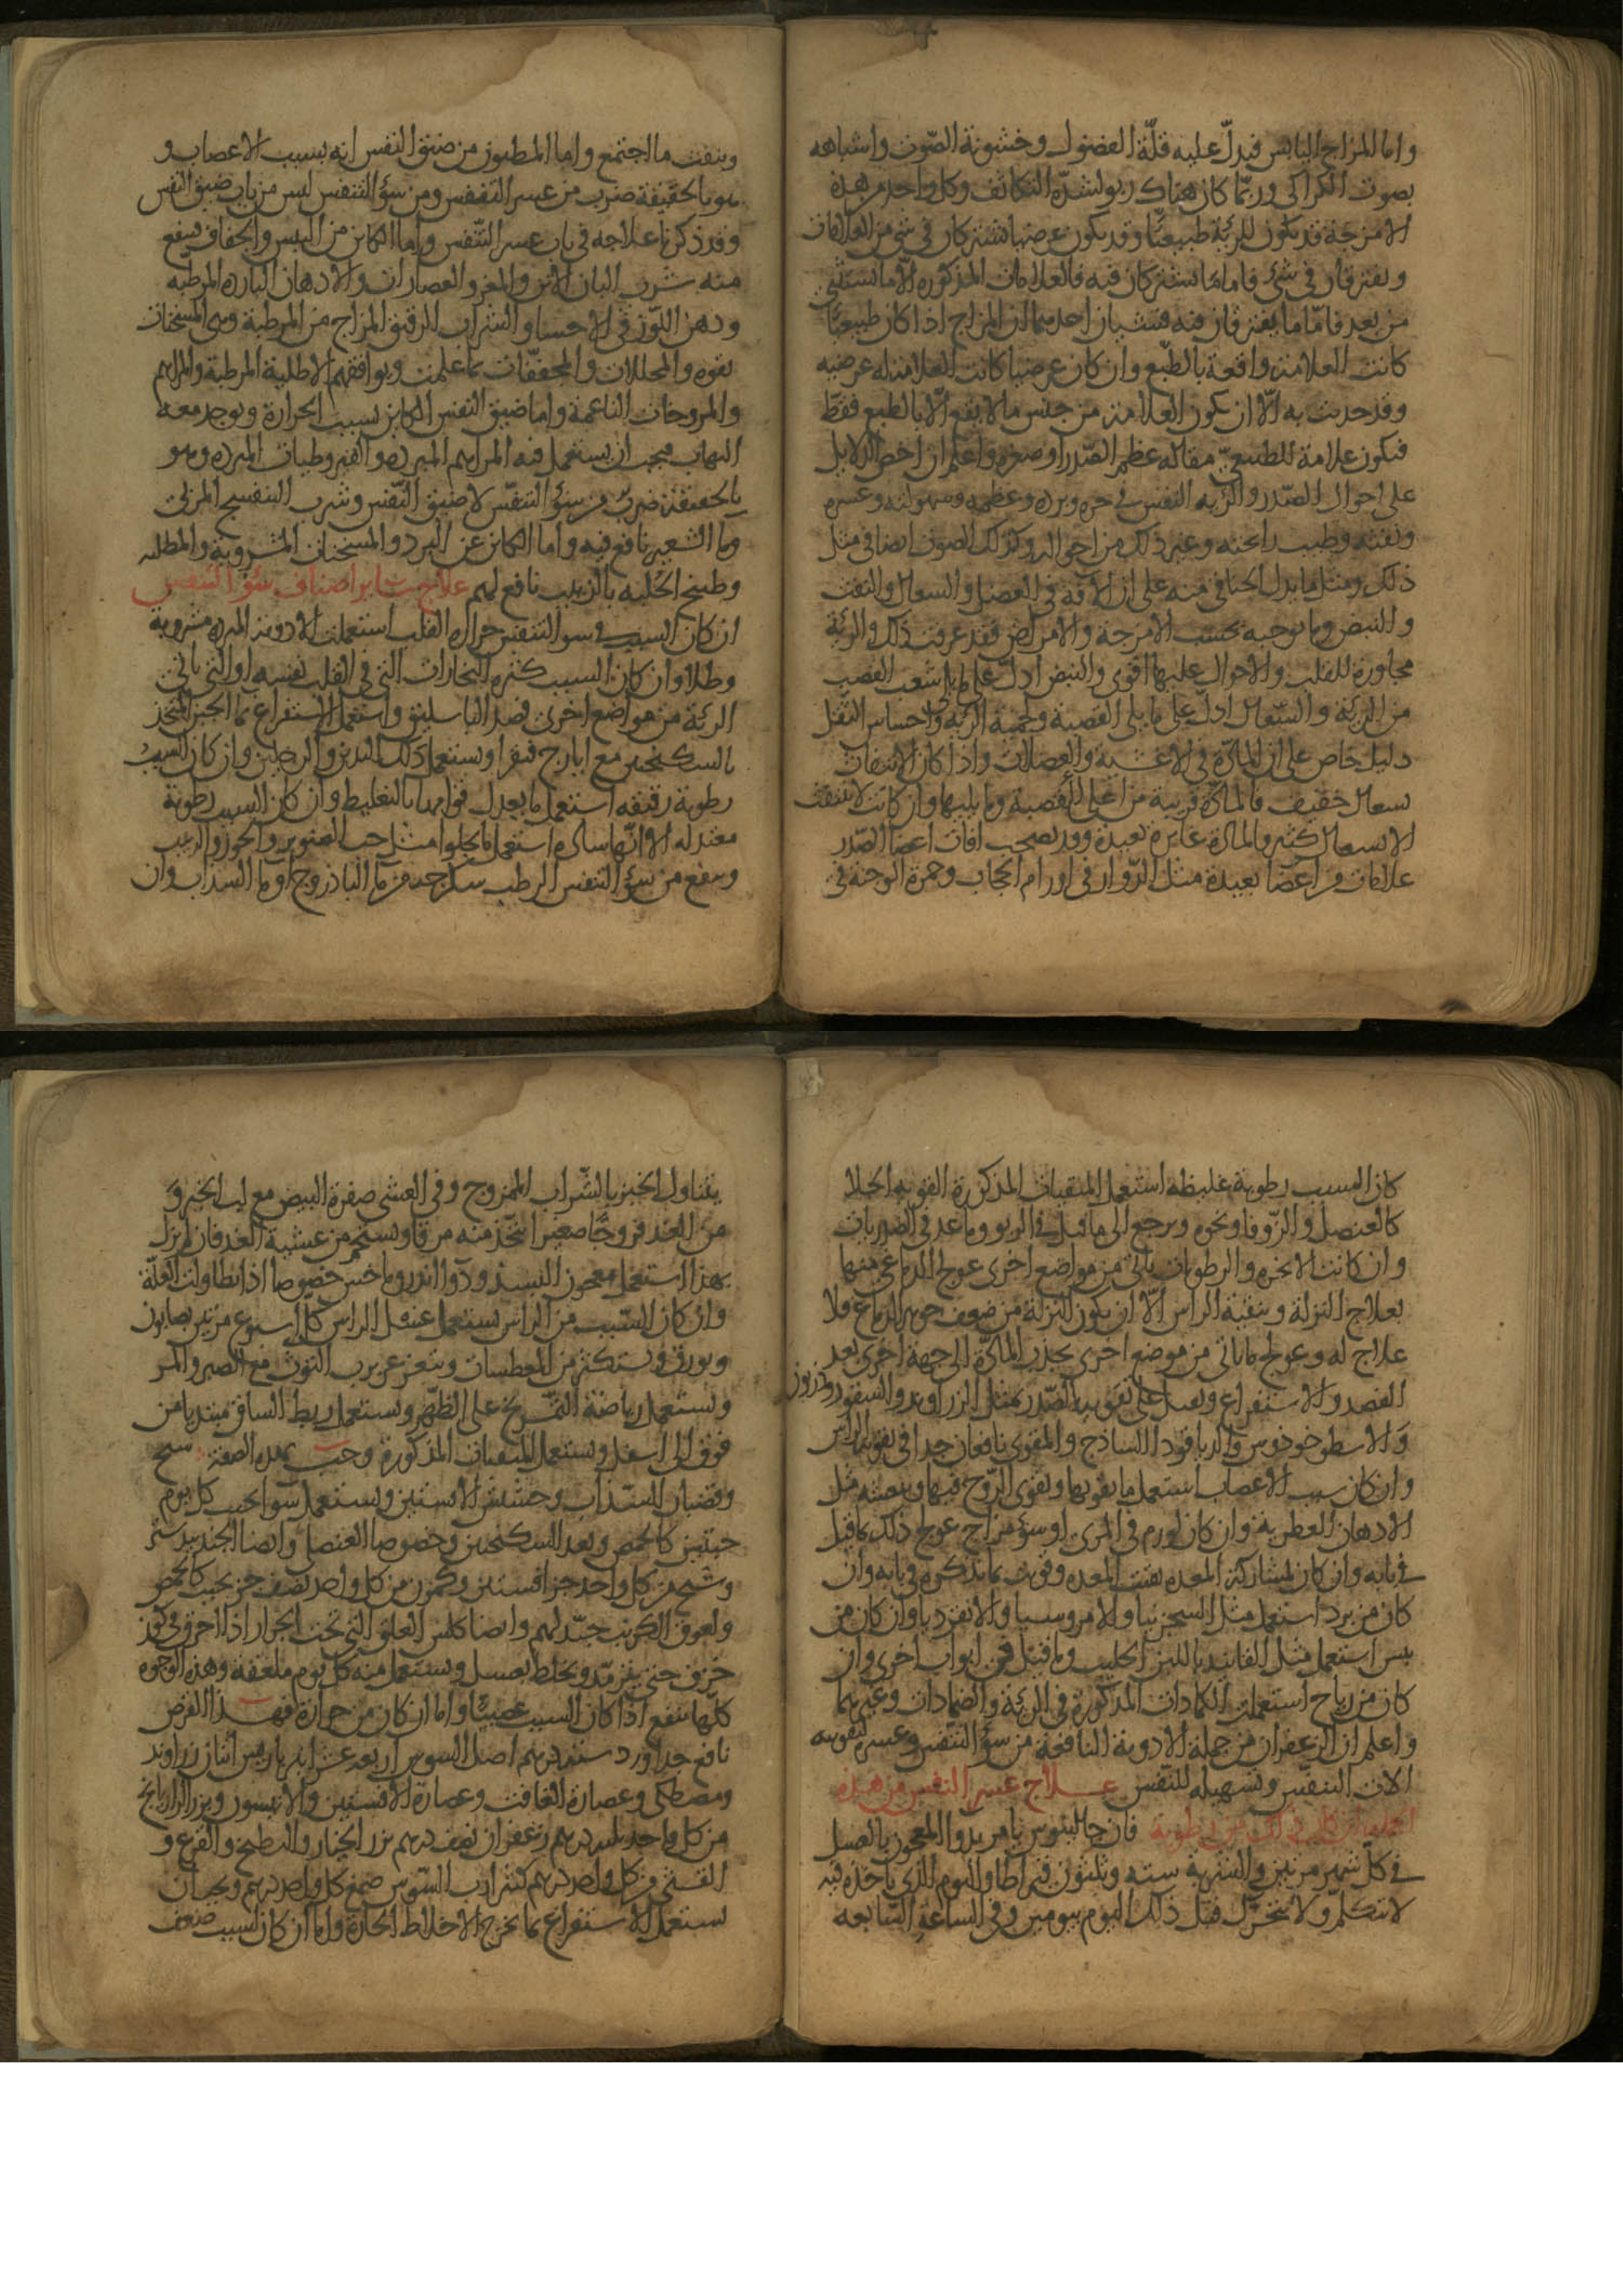 واما المزاج اليابس فيدلّ عليه قلّة الفضول وخشونة الصّوت واشباهه
بصوت الكراكي وربّما كان هناك ربو لشدّة التكاثف وكل واحد من هذه
الامزجة قد يكون للرئة طبيعيًّا وقد يكون عرضيا تشتركان في شي من العلامات
ويفترقان في شي فاما ما يشتركان فيه فالعلامات المذكوره الا ما نستثني
من بعد فامّا ما يفترقان فيه فشيان احدهما ان المزاج اذا كان طبيعيًّا
كانت العلامة واقعة بالطّبع وان كان عرضيا كانت العلامة له عرضيه
وقد حدثت به الّا ان يكون العلامة من جنس ما لا يقع الّا بالطبع فقطّ
فيكون علامة للطبيعيّ مثاله عظم الصّدر او صغره واعلم ان اخص الدلايل
على احوال الصّدر والرّيه النفس في حره وبرده وعظمه وسهولته وعسره
ونتنه وطيب رايحته وغير ذلك من احواله وكذلك الصوت ايضا في مثل
ذلك ومثل ما يدل الخناقي منه على ان الافة في العضل والسعال والنفث
والنبض وما يوجبه بحسب الامزجة والامراض فقد عرفت ذلك والرئة
مجاورة للقلب والاحوال عليها اقوى والنبض ادلّ على ما يلي شعب القصب
من الرئة والسّعال ادلّ على ما يلي القصبة ولحمية الرّيه واحساس الثقل
دليل خاص على ان المادّة في الاغشية والعضلات واذا كان الانتفاث
بسعال خفيف فالمادّة قريبة من اعلى القصبة وما يليها وان كانت لا تنتفث
الا بسعال كثير والمادة غايرة بعيدة وقد تصحب افات اعضا الصّدر
علامات من اعضا بعيدة مثل الدّوار في اورام الحجاب وحمرة الوجنة في
وينفث ما اجتمع واما المظنون من ضيق النفس انه بسبب الاعصاب و
هو بالحقيقة ضرب من عسر التنفس ومن سوء التنفس ليس من باب ضيق النفس
وقد ذكرنا علاجه في باب عسر التّنفس واما الكاين من اليبس والجفاف فينفع
منه شرب البان الاتن والمعز والعصارات والادهان البارده المرطبه
ودهن اللّوز في الاحسا والشراب الرقيق المزاج من المرطبة وهي المسخنات
بقوه والمحللات والمجففّات بما علمت ويوافقهم الاطلية المرطبة والمراهم
والمروخات الناعمة واما ضيق النفس الكاين بسبب الحرارة ويوجد معه
التهاب فيجب ان يستعمل فيه المراهم المبرده والقيروطيات المبرده وهو
بالحقيقة ضرب من سوء التنفّس لا ضيق النّفس وشرب البنفسج المربى
وما الشعير نافع فيه واما الكاين عن البرد والمسخنات المشروبة والمطليه
وطبيخ الحلبه بالزبيب نافع لهم علاج ساير اصناف سوء التنفس
ان كان السبب في سو التنفس حراره القلب استعملت الادوية المبرده مشروبة
وطلا وان كان السبب كثره البخارات التي في القلب نفسه او التي ياتي
الرئة من مواضع اخرى فصد الباسليق واستعمل الاستفراغ بما الجبن المتخذ
بالسكنجبين مع ايارج فيقرا ويستعمل دلك اليدين والرجلين وان كان السبب
رطوبة رقيقه استعمل ما يعدل قوامها بالتغليط وان كان السبب رطوبة
معتدله الا انّها ساده استعمل ما يجلوا مثل حب الصنوبر والجوز والزبيب
وينفع من سوء التنفس الرطب سكرجه من ما الباذروج او ما السذاب وان
كان السبب رطوبة غليظه استعمل المنقيات المذكورة القويه الجلا
كالعنصل والزّوفا ونحوه ويرجع الى ما قيل في الربو وما عد في الصدريات
وان كانت الابخره والرطوبات تاتي من مواضع اخرى عولج الدماغي منها
بعلاج النزلة وتنقية الراس الّا ان يكون النزلة من ضعف جوهر الدماغ فلا
علاج له وعولج ما ياتي من موضع اخرى بجذب المادّة الى جهة اخرى بعد
الفصد والاستفراغ ويعمل على تقويه الصّدر بمثل الزراوند والسقورديون
والاسطوخوذوس والدياقودا الساذج والمقوى نافعان جدا في تقوية الراس
وان كان سبب الاعصاب استعمل ما يقويها ويقوى الرّوح فيها وينعشه مثل
الادهان العطرية وان كان لورم في المرى او سوء مزاج عولج ذلك كما قيل
في بابه وان كان لمشاركة المعده نقيت المعده وقويت بما نذكره في بابه وان
كان من برد استعمل مثل السجزنيا والامروسيا والانقرديا وان كان من
يبس استعمل مثل الفانيد باللبن الحليب وما قيل في ابواب اخرى وان
كان من رياح استعملت الكمادات المذكورة في الرئة والضمادات وغيرهما
واعلم ان الزعفران من جملة الادوية النافعة من سوء التنفس وعسره لتقويته
الات التنفس وتسهيله للتنفس علاج عسر النفس من هذه
الجملة ان كان ذلك من رطوبة فان جالينوس يامر بدوا المعجون بالعسل
في كل شهر مرتين والشربة سته وثلثون قيراطا واليوم الذي ياخذه فيه
لا يتكلم ولا يتحرّك قبل ذلك اليوم بيومين وفي الساعة السّابعه
يتناول الخبز بالشّراب الممزوج وفي العشي صفرة البيض مع لب الخبز و
من الغد فروجًا صغيرا يتّخذ منه مرقا ويستحم من عشية الغد فان لم يزل
بهذا استعمل معجون البسد ودوا اندروماخس خصوصا اذا تطاولت العلّة
وان كان السّبب من الراس يستعمل غسل الراس كلّ اسبوع مرتين بصابون
وبورق ويستكثر من المعطسات ويتغرغر برب التوث مع الصبر والمر
ويستعمل رياضة التمريخ على الظّهر ويستعمل ربط الساق مبتديا من
فوق الى اسفل ويستعمل المنقيات المذكورة وحب بهذه الصفة شيح
وقضبان السّذاب وحشيش الافسنتين ويستعمل سوا يحبب كل يوم
حبتين كالحمص وبعد السكنجبين وخصوصا العنصلي وايضا الجندبيدستر
وشيح من كل واحد جز افسنتين وكمون من كل واحد نصف جز يحبب كالحمص
ولعوق الكرنب جيّد لهم وايضا كلس العلق التي تحت الجرار اذا احرق في كوز
خزف حتى يترمّد ويخلط بعسل ويستعمل منه كل يوم ملعقه وهذه الوجوه
كلّها تنفع اذا كان السبب عصبيًّا واما ان كان من حرارة فهذا القرص
نافع جدا ورد سته دراهم اصل السوس اربعه عشر امبرباريس اثنان زراوند
ومصطكى وعصارة الغافت وعصارة الافسنتين والانيسون وبزر الرازيانج
من كل واحد ثلثه دراهم زعفران نصف درهم بزر الخيار والبطيخ والقرع و
القثى من كل واحد درهم كثيرا رب السّوس صمغ كل واحد درهم ويجب ان
يستعمل الاستفراغ بما يخرج الاخلاط الحارة واما ان كان لسبب ضعف